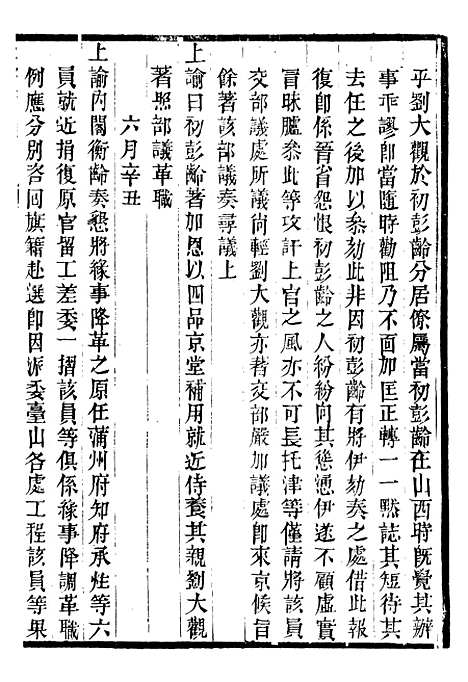 乎劉大觀於初彭齡分居僚屬當初彭齡在山西時旣覺其辦
事乖謬卽當隨時勸阻乃不面加匡正轉一一默誌其短待其
去任之後加以叅劾此非因初彭齡有將伊劾奏之處借此報
復卽係晉省怨恨初彭齡之人紛紛向其慫慂伊遂不顧虛實
冒昧臚叅此等攻訐上官之風亦不可長托津等僅請將該員
交部議處所議尚輕劉大觀亦著交部嚴加議處卽來京候旨
餘著該部議奏尋議上
上諭曰初彭齡著加恩以四品京堂補用就近侍養其親劉大觀
著照部議革職
六月辛丑
上諭內閣衡齡奏懇將緣事降革之原任蒲州府知府承烓等六
員就近捐復原官留工差委一摺該員等俱係緣事降調革職
例應分別咨回旗籍赴選卽因派委臺山各處工程該員等果